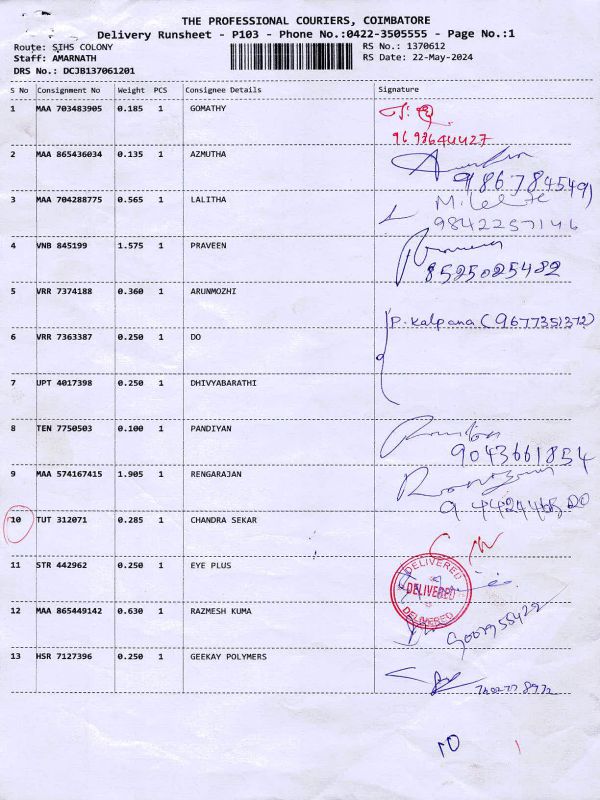 THE PROFESSIONAL COURIERS, COIMBATORE
Delivery Runsheet - P103 - Phone No.:0422-3505555 - Page No.:1
Route: SIHS COLONY
Staff: AMARNATH
DRS No.: DCJB137061201
RS No.: 1370612
RS Date: 22-May-2024
S No Consignment No Weight PCS Consignee Details Signature
1 MAA 703483905 0.185 1 GOMATHY
9693644427
2 MAA 865436034 0.135 1 AZMUTHA
9867845491
3 MAA 704288775 0.565 1 LALITHA
9842257146
4 VNB 845199 1.575 1 PRAVEEN
8525025482
5 VRR 7374188 0.360 1 ARUNMOZHI
P. Kalpana (9677351372)
6 VRR 7363387 0.250 1 DO
7 UPT 4017398 0.250 1 DHIVYABARATHI
8 TEN 7750503 0.100 1 PANDIYAN
9043661854
9 MAA 574167415 1.905 1 RENGARAJAN
10 TUT 312071 0.285 1 CHANDRA SEKAR
11 STR 442962 0.250 1 EYE PLUS
DELIVERED
DELIVERED
DELIVERED
12 MAA 865449142 0.630 1 RAZMESH KUMA
13 HSR 7127396 0.250 1 GEEKAY POLYMERS
10